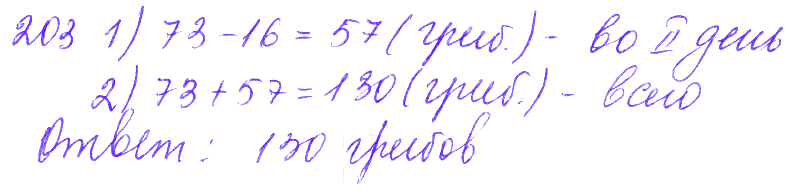 203 1) 73 - 16 = 57 (гриб.) - во II день
2) 73 + 57 = 130 (гриб.) - всего
Ответ: 130 грибов